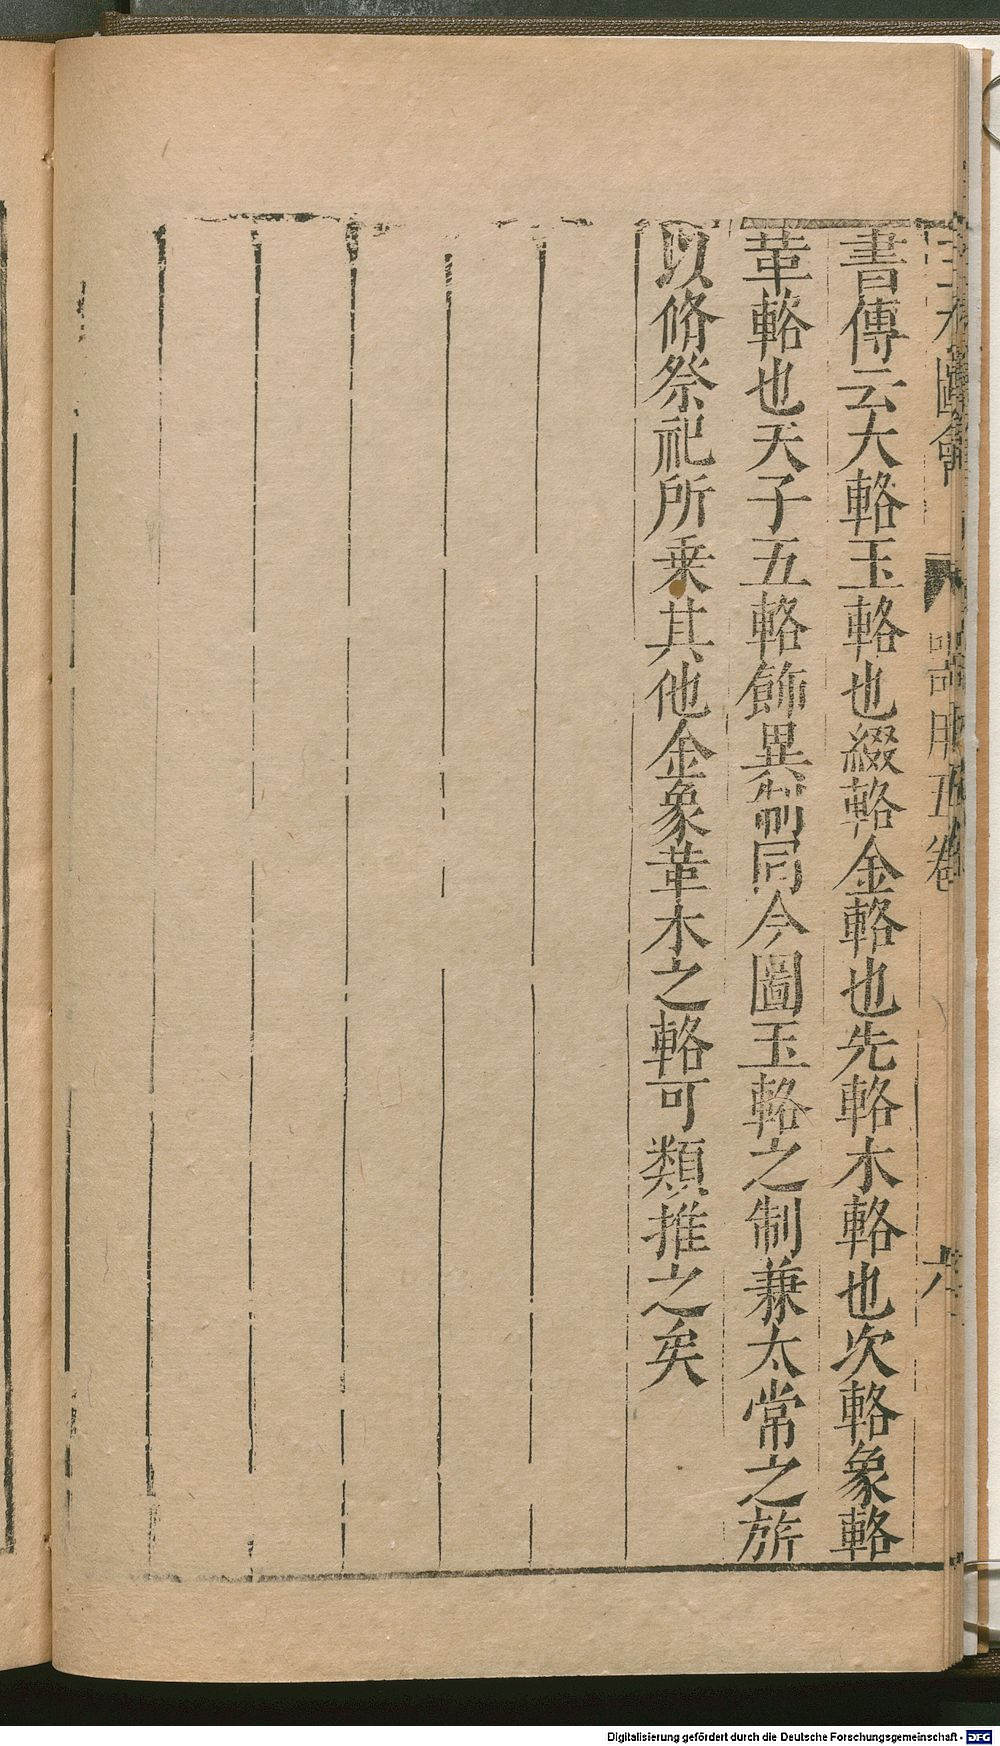 書傳云大輅玉輅也綴輅金輅也先輅木輅也次輅象輅
革輅也天子五輅飾異制同今圖玉輅之制兼太常之旂
以脩祭祀所乗其他金象革木之輅可類推之矣
圖會
器用五卷
六
Digitalisierung gefördert durch die Deutsche Forschungsgemeinschaft - DFG